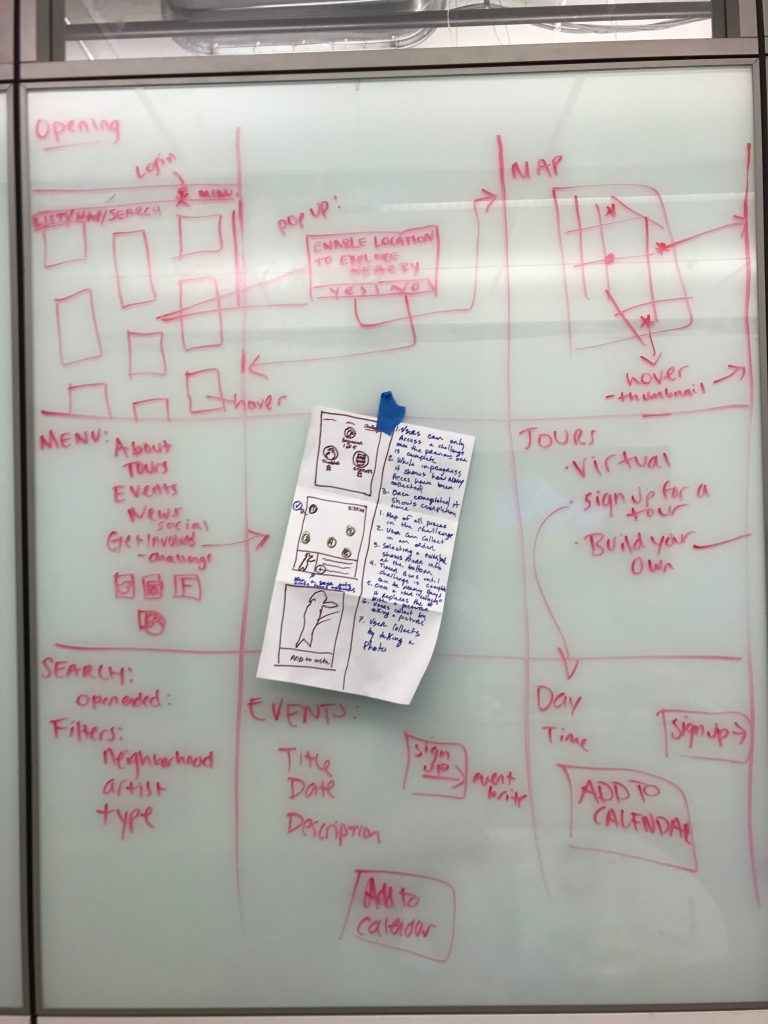 Opening
Login
MENU
LIST/MAP/SEARCH
hover
pop up:
ENABLE LOCATION
TO EXPLORE
NEARBY
YES | NO
MAP
hover
-thumbnail
MENU:
About
Tours
Events
News
social
Get Involved
-challenge
F
1. Users can only
Access a challenge
once the previous one
is complete
2. While in progress
it shows how many
pieces have been
collected
3. Once completed it
shows completion
1. Map of all pieces
in the challenge
2. User can collect
in any order
3. Selecting a
shows more info
at the bottom
4. Timer runs until
challenge is complete
can be many days
5. Once a user "collects"
it replaces the
6.
Users collect by
taking a picture
7. User collects
by taking a
Photo
ADD to insta
TOURS
• Virtual
• sign up for a
tour
• Build your
own
SEARCH:
openended:
Filters:
neighborhood
artist
type
EVENTS:
Title
Date
Description
sign
up
event
brite
Add to
calendar
Day
Time
Sign up
ADD TO
CALENDAR